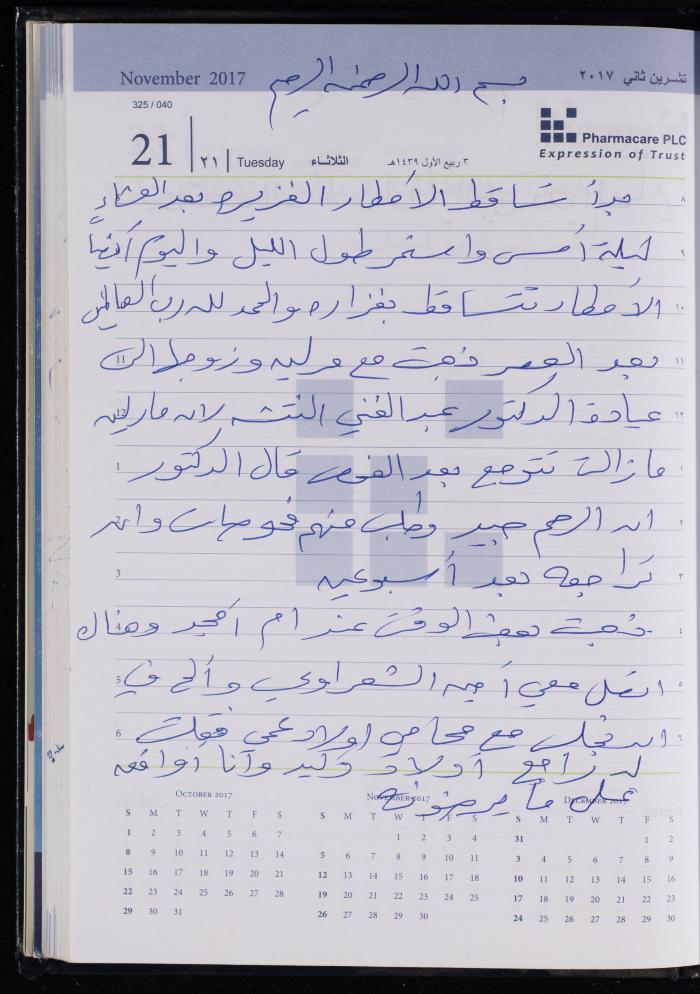 November 2017
بسم الله الرحمن الرحيم
تشرين ثاني ٢٠١٧
325 / 040
21 | ٢١ | Tuesday الثلاثاء ٣ ربيع الأول ١٤٣٩هـ
Pharmacare PLC
Expression of Trust
بدأ تساقط الأمطار الغزيره بعد العشاء ٨
ليلة أمس واستمر طول الليل واليوم أيضاً ٩
الأمطار تتساقط بغزاره والحمد لله رب العالمين ١٠
11 بعد العصر ذهبت مع مرلين وزوجها الى ١١
12 عيادة الدكتور عبد الغني النتشه لان مارلين ١٢
1 ما زالت تتوجع بعد الفحص قال الدكتور ١
2 ان الرحم جيد وطلب منهم فحوصات وان ٢
3 تراجعه بعد أسبوعين ٣
4 ذهبت بعض الوقت عند ام امجد وهناك ٤
5 اتصل معي أمين الشعراوي وألح في ٥
6 ان نجلس مع محامي اولاد عمي فقلت ٦
له راجع أولاد وأنا اوافقه
على ما يرضونه
October 2017
S M T W T F S
1 2 3 4 5 6 7
8 9 10 11 12 13 14
15 16 17 18 19 20 21
22 23 24 25 26 27 28
29 30 31
November 2017
S M T W T F S
1 2 3 4
5 6 7 8 9 10 11
12 13 14 15 16 17 18
19 20 21 22 23 24 25
26 27 28 29 30
December 2017
S M T W T F S
31 1 2
3 4 5 6 7 8 9
10 11 12 13 14 15 16
17 18 19 20 21 22 23
24 25 26 27 28 29 30